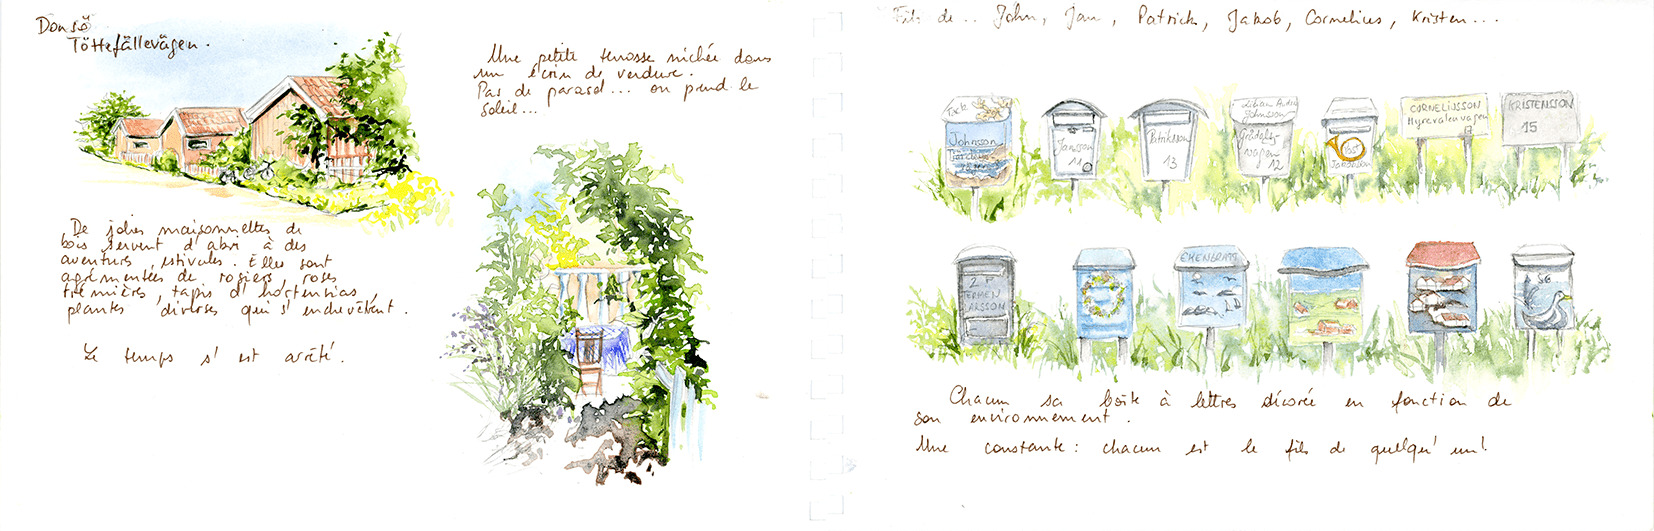 Donsö
Töttefällevägen.
De jolies maisonnettes de
bois servent d'abri à des
aventures estivales. Elles sont
agrémentées de rosiers, roses
trémières, tapis d'hortensias,
plantes diverses qui s'enchevêtrent.
Le temps s'est arrêté.
Une petite terrasse nichée dans
un écrin de verdure.
Pas de parasol... on prend le
soleil...
Fils de... John, Jan, Patrick, Jakob, Cornelius, Kristen...
Johnsson
Jansson
11
Patriksson
13
Johnsson
12
Post
CORNELIUSSON
Hyrevalenvägen
KRISTENSSON
15
2 P
LARSSON
56
Chacun sa boîte à lettres décorée en fonction de
son environnement.
Une constante : chacun est le fils de quelqu'un!